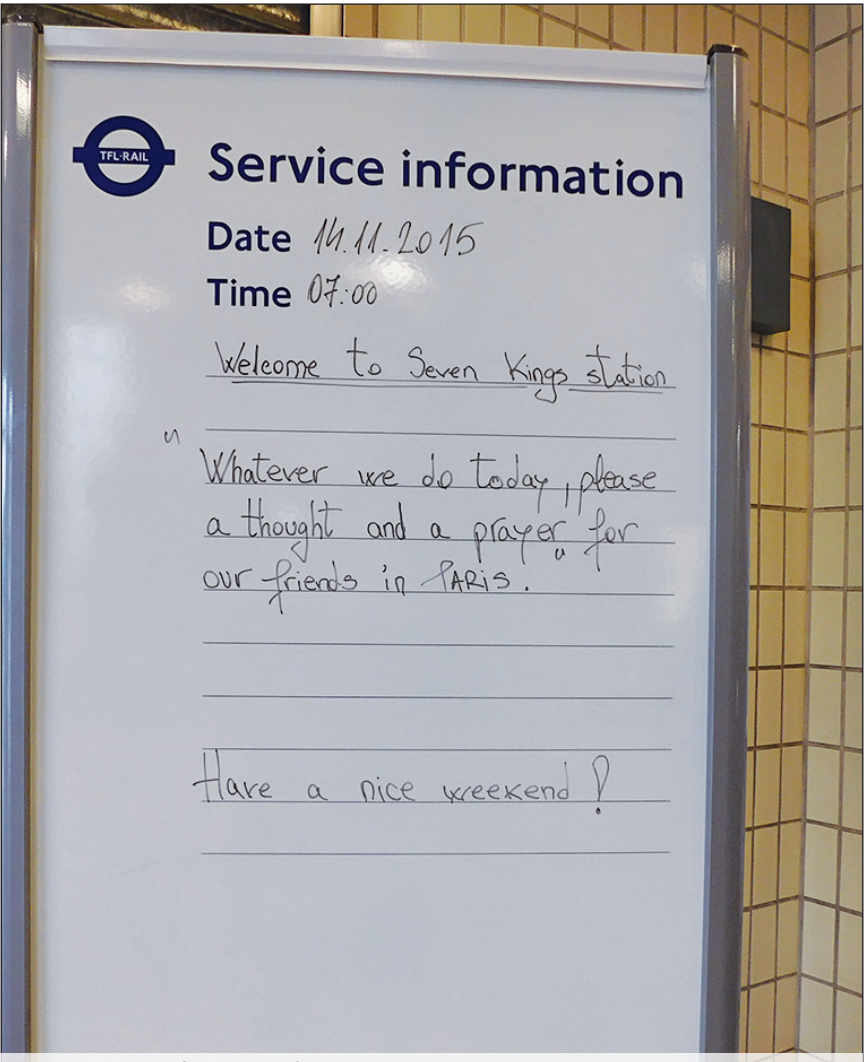 TFL·RAIL
Service information
Date 14.11.2015
Time 07:00
Welcome to Seven Kings station
"Whatever we do today, please
a thought and a prayer" for
our friends in PARiS.
Have a nice weekend!